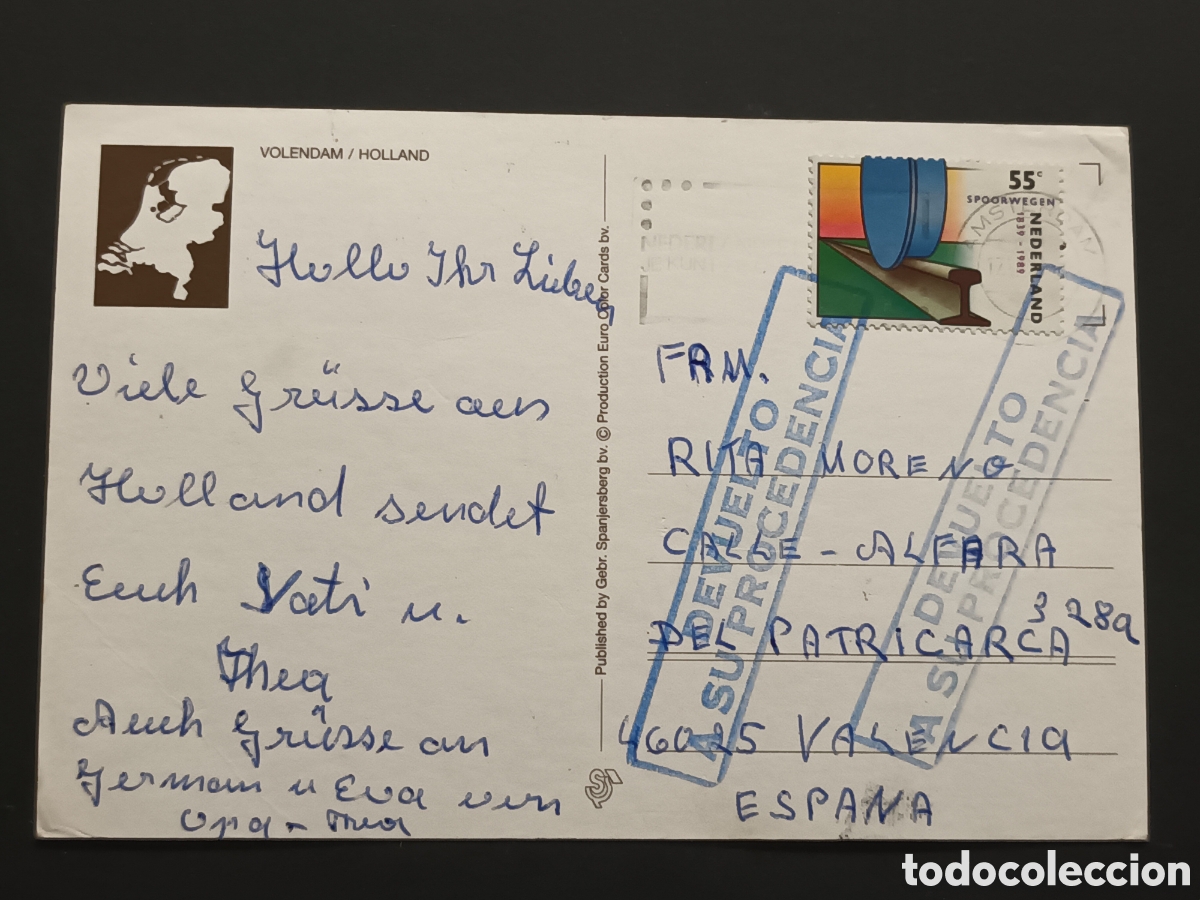 VOLENDAM / HOLLAND
Hollo Ihr Lieben
Viele Grüsse aus
Holland sendet
Euch Vati u.
Thea
Auch Grüsse an
German u Eva von
Opa - Thea
Published by Gebr. Spanjersberg bv. © Production Euro Color Cards bv.
55c
SPOORWEGEN
NEDERLAND
1839 - 1989
AMSTERDAM
FAM.
RITA MORENO
CALLE - ALFARA
DEL PATRICARCA 3 28a
46025 VALENCIA
ESPANA
DEVUELTO
A SU PROCEDENCIA
DEVUELTO
A SU PROCEDENCIA
todocoleccion